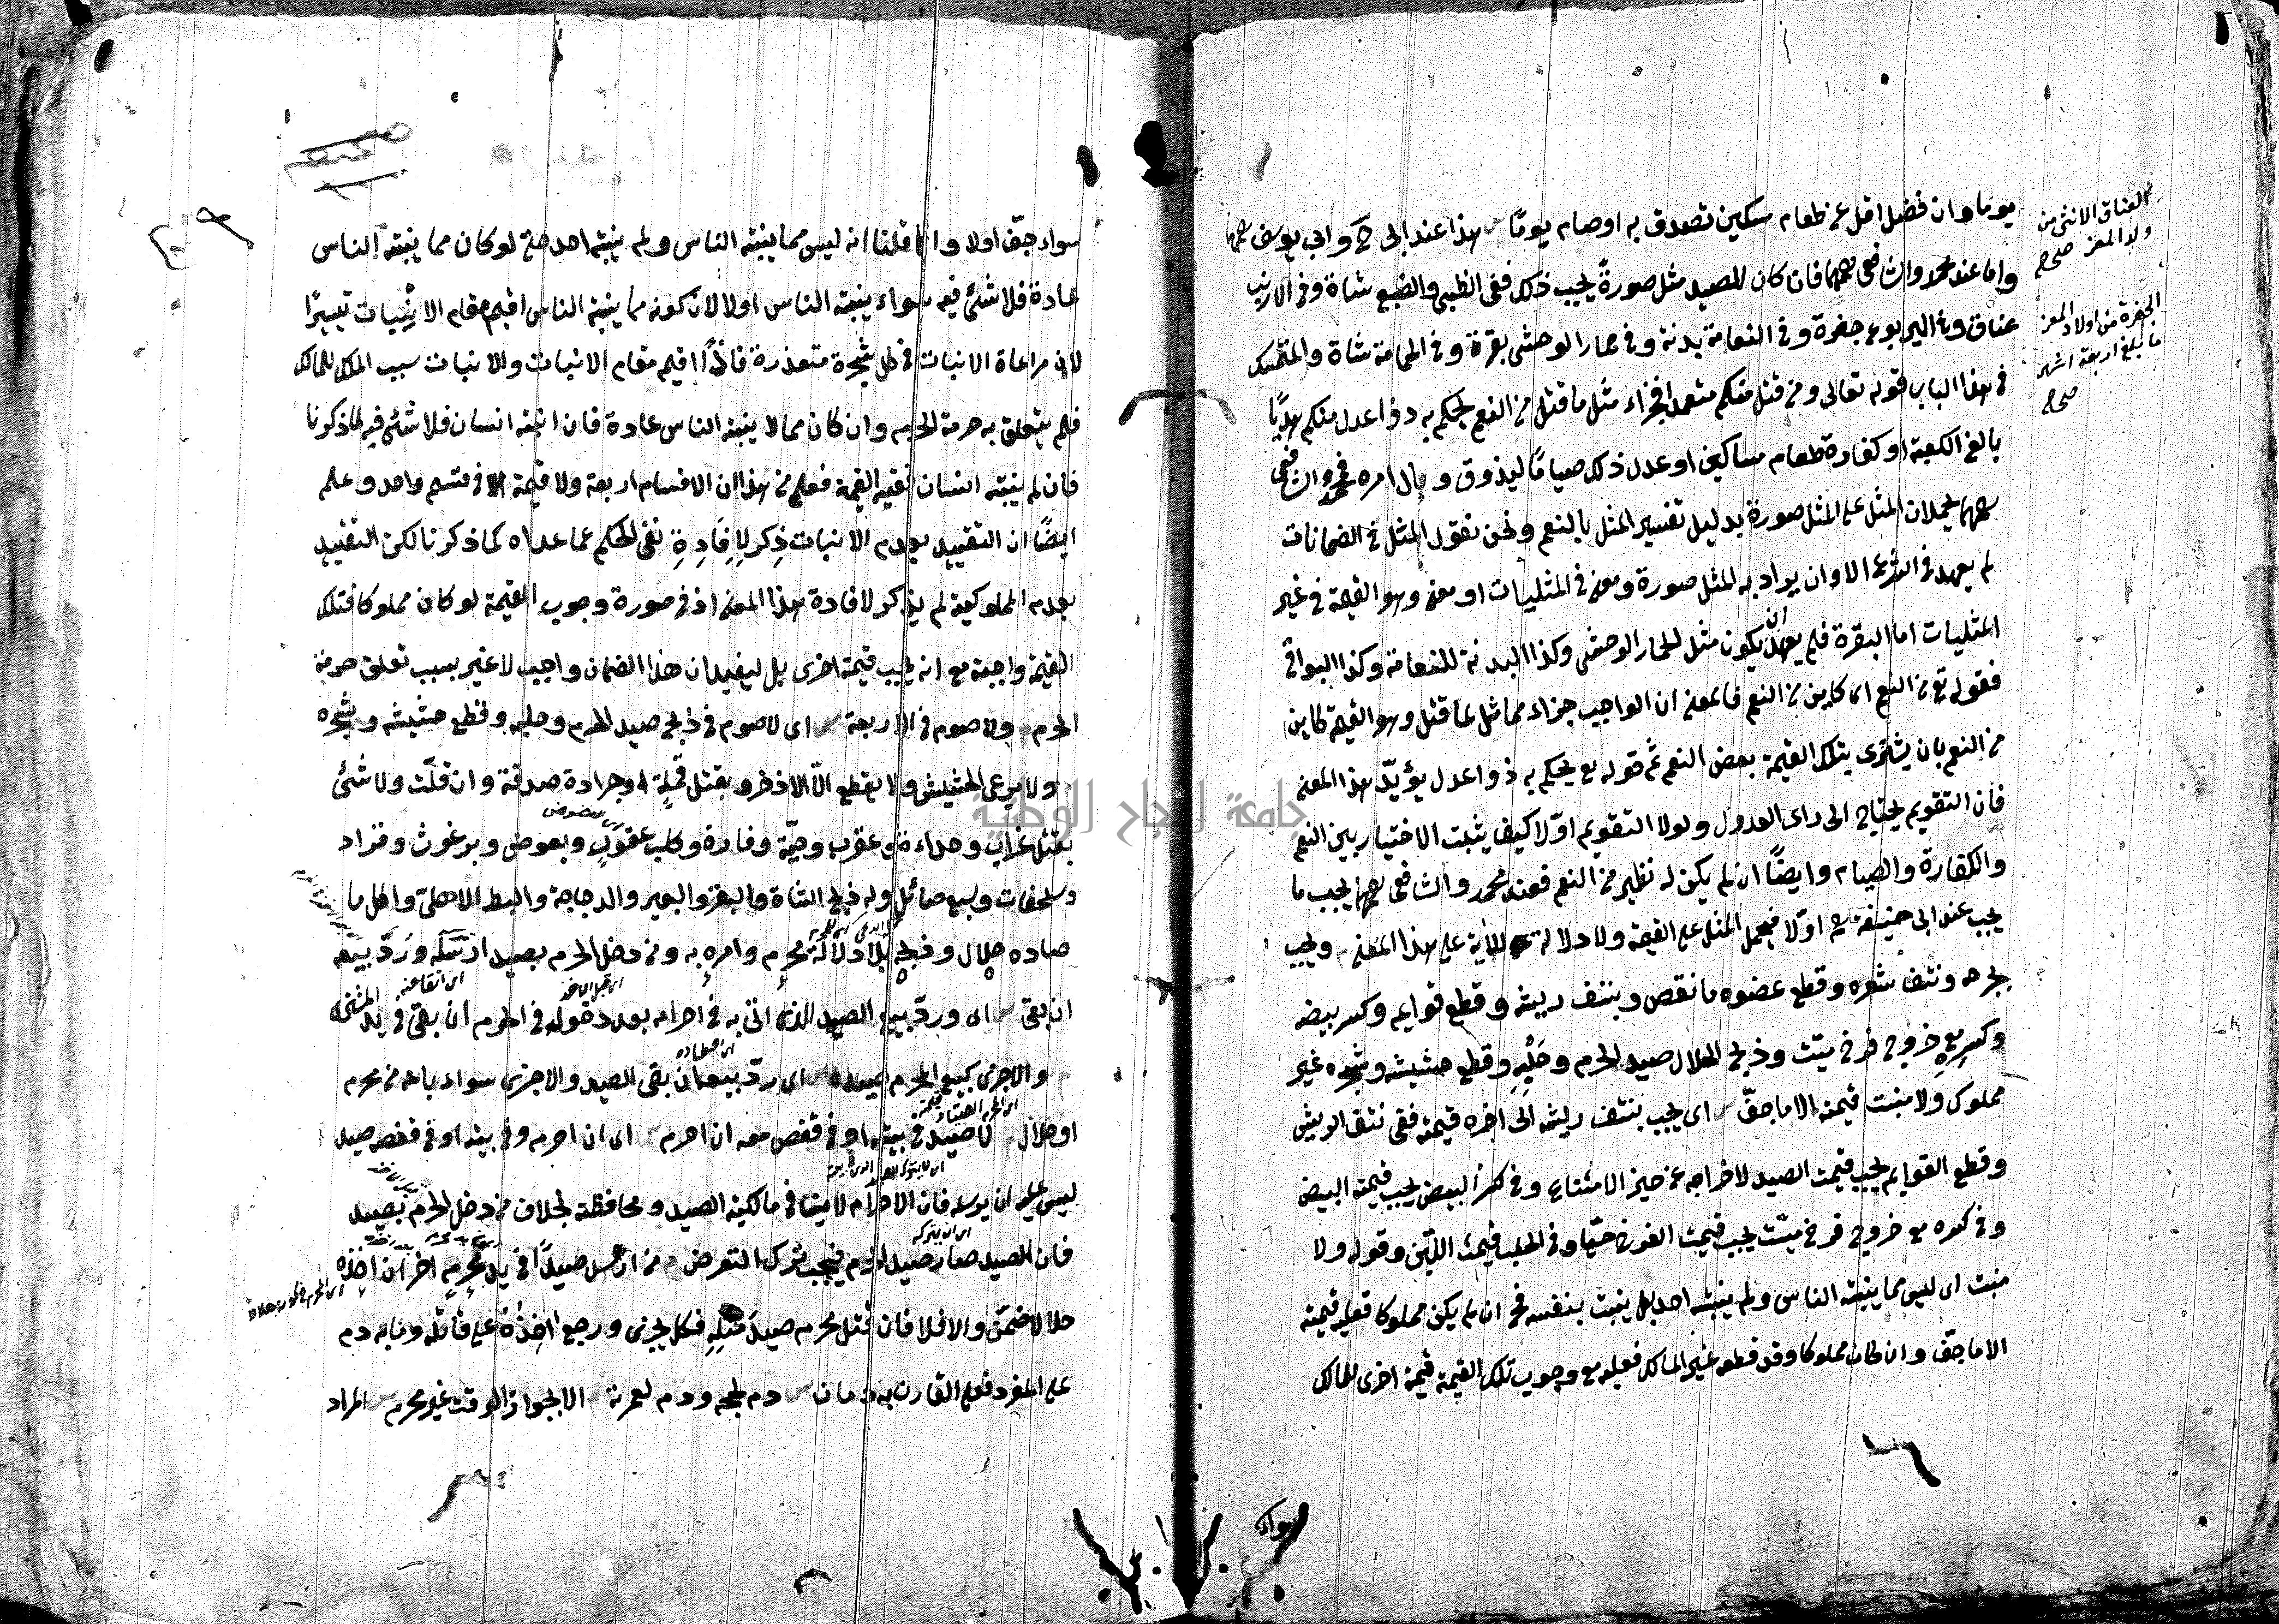 يوما وان فضل اقل عن طعام مسكين تصدق به اوصام يومًا هذا عند ابى ح وابي يوسف رحمهما
واما عند محمد والشافعى رحمهما فان كان للصيد مثل صورةً يجب ذلك ففى الظبى والضبع شاة وفى الارنب
عناق وفى اليربوع جفرة وفى النعامة بدنة وفى حمار الوحشى بقرة وفى الحمامة شاة والمتمسك
فى هذا الباب قوله تعالى ومن قتل منكم متعمدا فجزاء مثل ما قتل من النعم يحكم به ذوا عدل منكم هديًا
بالغ الكعبة او كفارة طعام مساكين او عدل ذلك صيامًا ليذوق وبال امره فمحمد والشافعى
رحمهما يحملان المثل على المثل صورة بدليل تفسير المثل بالنعم ونحن نقول المثل فى الضمانات
لم يعهد فى الشرع الا وان يراد به المثل صورة ومعنى فى المثليات او معنى وهو القيمة فى غير
المثليات اما البقرة فلم يعهد ان يكون مثل للحمار الوحشى وكذا البدنة للنعامة وكذا البواقى
فقوله تع من النعم اى كاين من النعم فالمعنى ان الواجب جزاء مماثل لما قتل وهو القيمة كاين
من النعم بان يشترى بتلك القيمة بعض النعم ثم قوله تع يحكم به ذوا عدل يؤيّد هذا المعنى
فان التقويم يحتاج الى راى العدول ولولا التقويم اوّلا كيف يثبت الاختيار بين النعم
والكفارة والصيام وايضًا ان لم يكن له نظير من النعم فعند محمد والشافعى رحمهما يجب ما
يجب عند ابى حنيفة رح اوّلا فيحمل المثل على القيمة ولا دلالة للآية على هذا المعنى ويجب
بجرحه ونتف شعره وقطع عضوه ما نقص وبنتف ريشه وقطع قوايمه وكسر بيضه
وكسرِهِ مع خروج فرخ ميّت وذبح الحلال صيد الحرم وحَلْبِهِ وقطع حشيشه وشجره غير
مملوك ولا منبت قيمته الا ما جفّ اى يجب بنتف ريشه الى اخره قيمته ففى نتف الريش
وقطع القوايم يجب قيمت الصيد لاخراجه عن حيز الامتناع وفى كسر البيض يجب قيمة البيض
وفى كسره مع خروج فرخ ميّت يجب قيمت الفرخ حيّا وفى الحلب قيمت اللبن وقوله ولا
منبت اى ليس مما ينبته الناس ولم ينبته احد بل ينبت بنفسه فح ان لم يكن مملوكا فعليه قيمته
الا ما جفّ وان كان مملوكا وقد قطعه غير المالك فعليه مع وجوب تلك القيمة قيمة اخرى للمالك
سواء
العناق الانثى من
ولد المعز صحاح
الجفرة من اولاد المعز
ما بلغ اربعة اشهر
صحاح
سواء جفّ اولا وانما قلنا انه ليس مما ينبته الناس ولم ينبته احد حتى لو كان مما ينبته الناس
عادة فلا شئ فيه سواء ينبته الناس اولا لان كونه مما ينبته الناس اقيم مقام الانبات تيسيرًا
لان مراعاة الانبات فى كل شجرة متعذرة فاذًا اقيم مقام الانبات والانبات سبب الملك للمالك
فلم يتعلق به حرمة الحرم وان كان مما لا ينبته الناس عادة فان انبته انسان فلا شئ فيه لما ذكرنا
فان لم ينبته انسان ففيه القيمة فعلم من هذا ان الاقسام اربعة ولا قيمة الا فى قسم واحد وعلم
ايضًا ان التقييد بعدم الانبات ذِكر لِافادةِ نفى الحكم عما عداه كما ذكرنا لكن التقييد
بعدم المملوكية لم يذكر لافادة هذا المعنى اذ فى صورة وجوب القيمة لو كان مملوكا فتلك
القيمة واجبة مع انه يجب قيمة اخرى بل ليفيد ان هذا الضمان واجب لا غير بسبب تعلق حرمة
الحرم ولا صوم فى الاربعة اى لا صوم فى ذبح صيد الحرم وحلبه وقطع حشيشه وشجره
ولا يرعى الحشيش ولا يقطع الّا الاذخر وبقتل قملةٍ او جرادة صدقة وان قلّت ولا شئ
بقتل غراب وحداءة وعقرب وحيّة وفارة وكلب عقورٍ وبعوض وبرغوث وقراد
وسلحفات وسبع صائل وله ذبح الشاة والبقر والبعير والدجاجة والبط الاهلى واكل ما
صاده حلال وذبحه بلا دلالة محرم وامره به ومن دخل الحرم بصيد ارسله ورَدّ بيعه
ان بقى اى وردّ بيع الصيد الذى اتى به فى احرام بعد دخوله فى الحرم ان بقى فى يد المشترى
والا جزى كبيع المحرم صيده اى ردّ بيعه ان بقى الصيد والا جزى سواء باعه من محرم
او حلال لا صيدٌ فى بيته او فى قفص معه ان احرم اى ان احرم وفى بيته او فى قفصه صيد
ليس عليه ان يرسله فان الاحرام لا ينافى مالكية الصيد ومحافظته بخلاف من دخل الحرم بصيد
فان الصيد صار صيد الحرم فيجب ترك التعرض ومن ارسل صيدًا فى يد محرمٍ اخر ان اخذه
حلالا ضمن والا فلا فان قتل محرم صيدَ مثلِهِ فكل يجزى ورجع اخذُهُ على قاتله وما به دم
على المفرد فعلى القارن به دمان دم لحجه ودم لعمرته الا بجواز الوقت غير محرم المراد
جامعة النجاح الوطنية